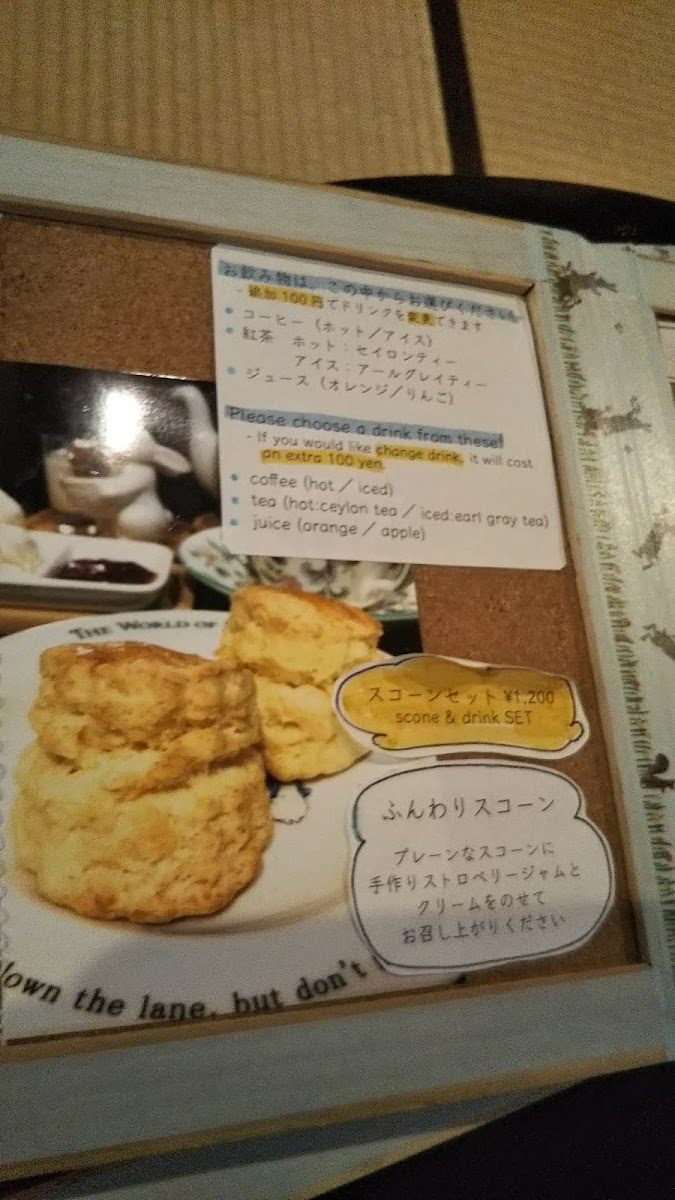 お飲み物は、この中からお選びください。
- 追加100円でドリンクを変更できます
• コーヒー (ホット／アイス)
• 紅茶 ホット：セイロンティー
アイス：アールグレイティー
• ジュース (オレンジ／りんご)
Please choose a drink from these!
- If you would like change drink, it will cost
an extra 100 yen.
• coffee (hot / iced)
• tea (hot:ceylon tea / iced:earl gray tea)
• juice (orange / apple)
THE WORLD OF
スコーンセット ¥1,200
scone & drink SET
ふんわりスコーン
プレーンなスコーンに
手作りストロベリージャムと
クリームをのせて
お召し上がりください
down the lane, but don't